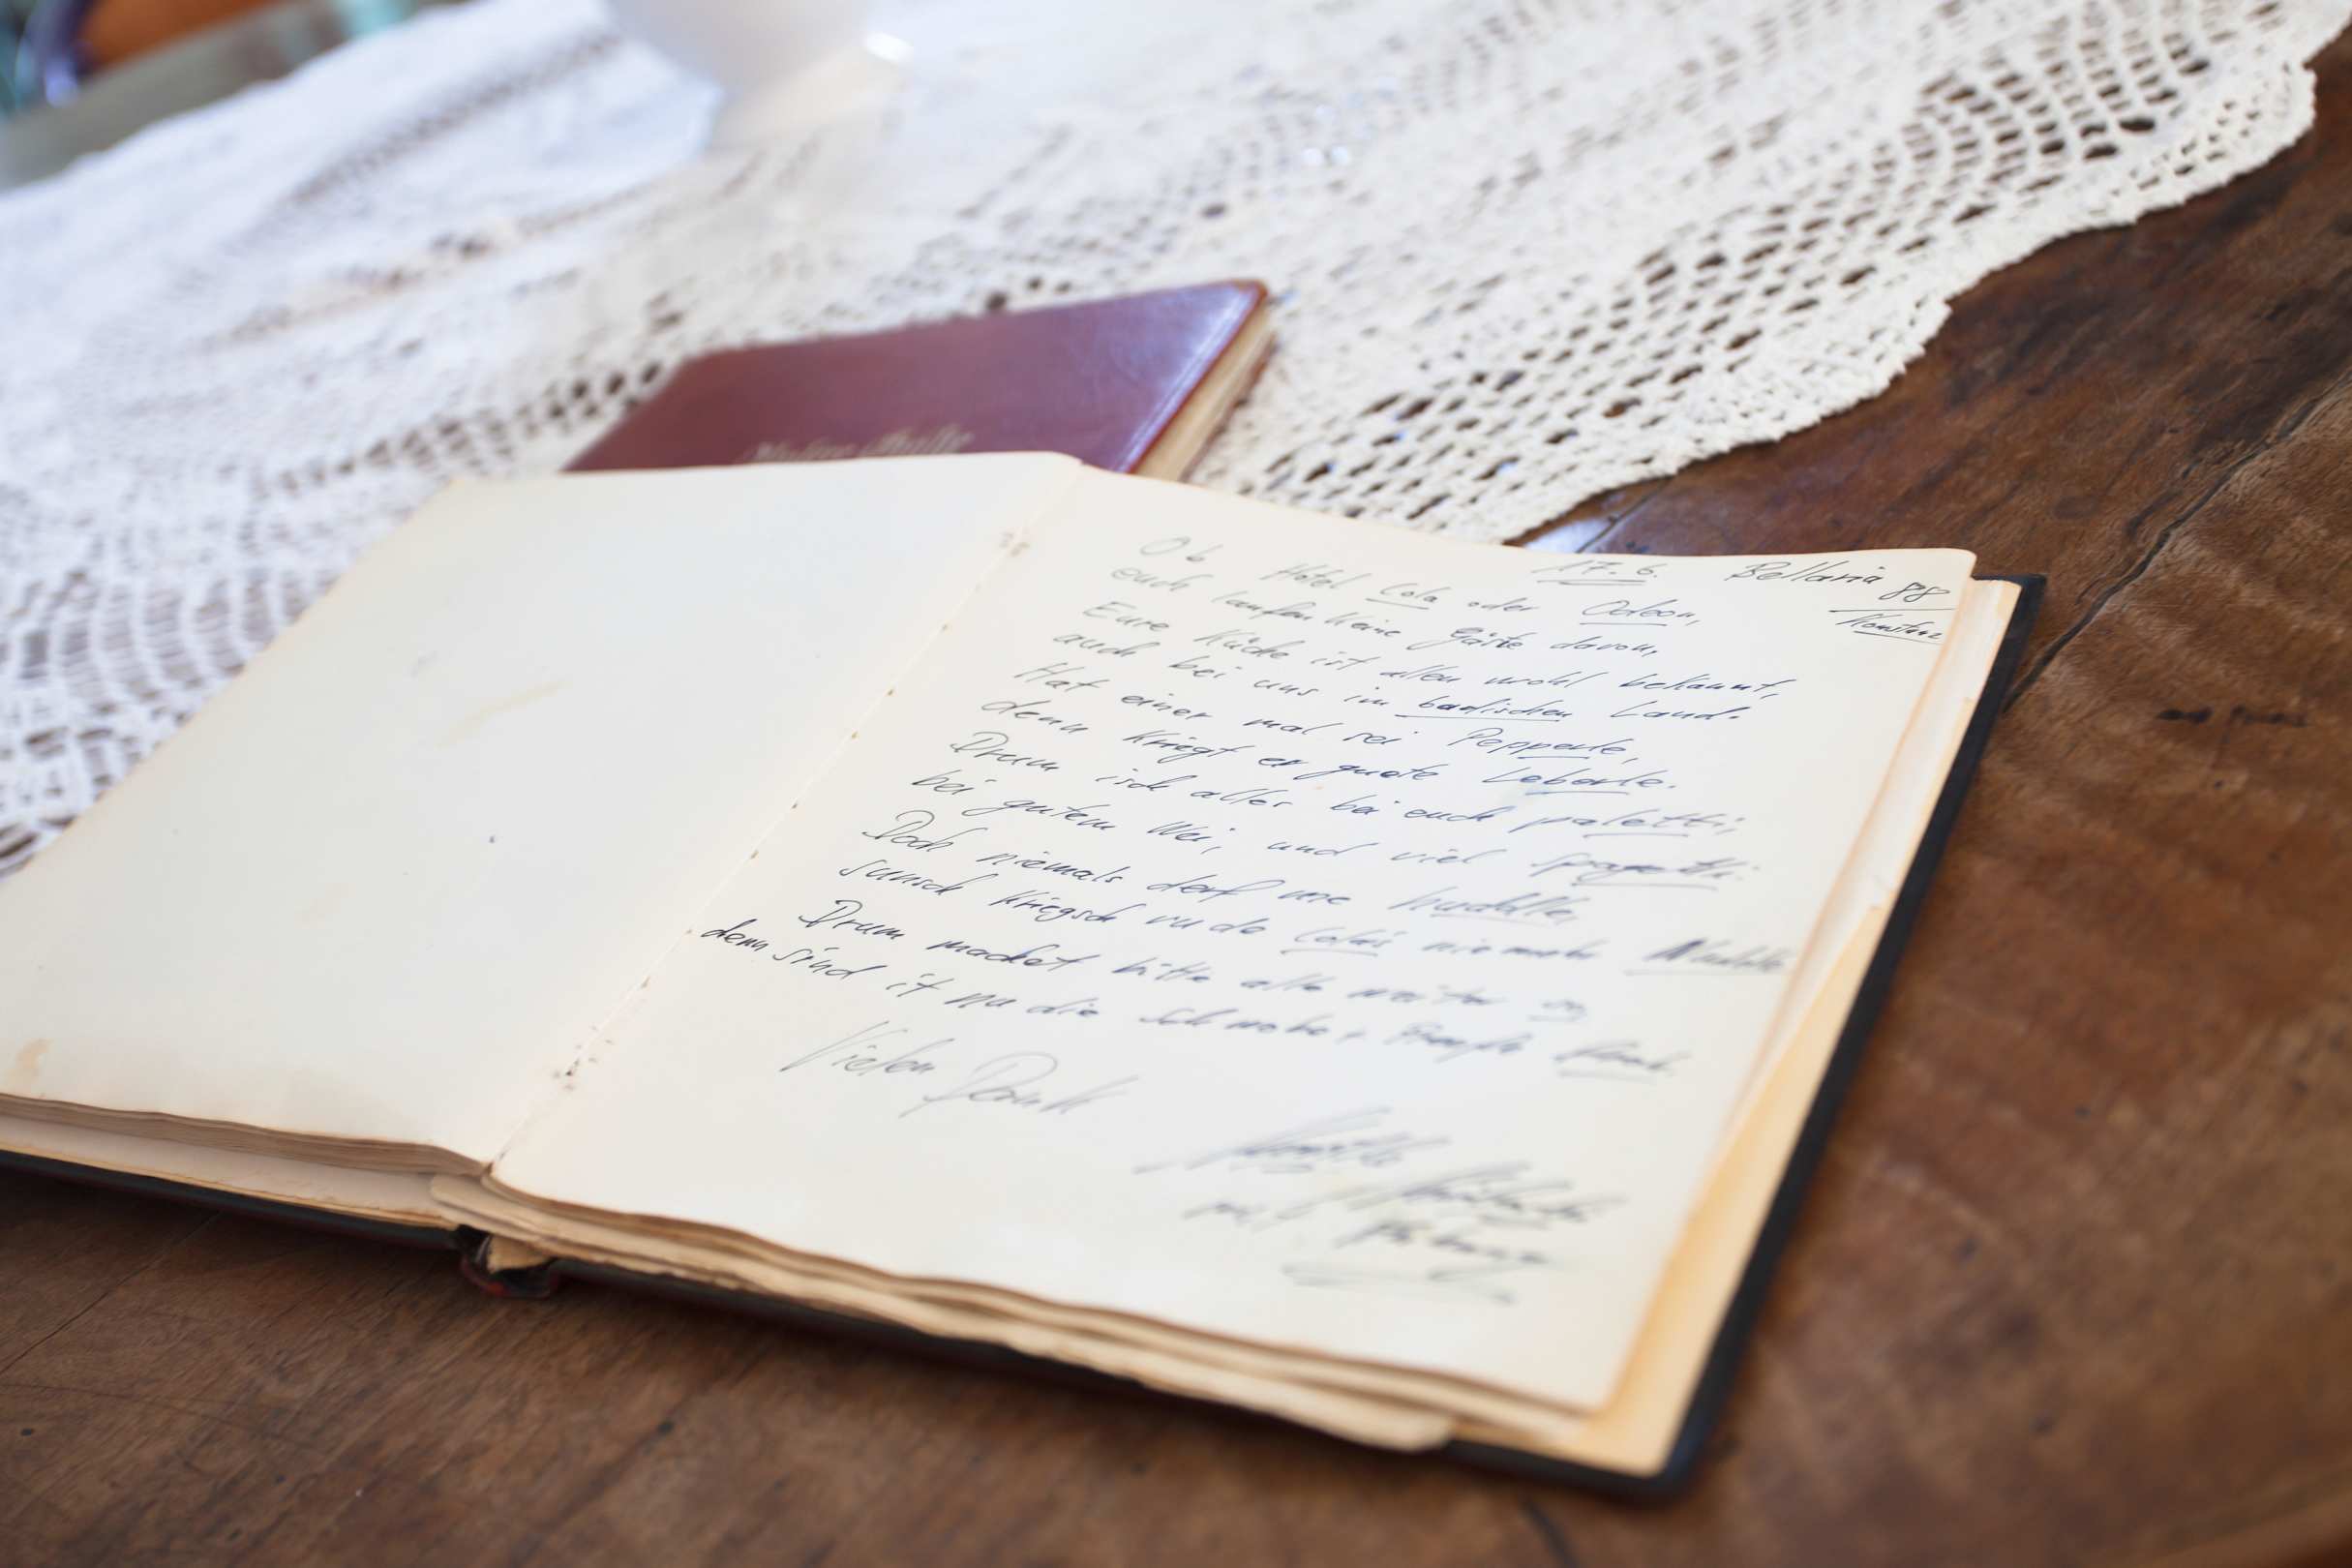 17. 6. Bellaria 88
Konstanz
Ob Hotel Lola oder Odeon,
euch laufen keine Gäste davon,
Eure Küche ist allen wohl bekannt,
auch bei uns im badischen Land.
Hat einer mal sei Pepperle,
denn kriegt er guete Leberle.
Drum isch alles bei euch paletti,
bei gutem Wei, und viel Spagetti.
Doch niemals derf me huddle,
sunsch kriegsch vu de nie mehr Nudle
Drum machet bitte alle weiter so
denn sind it nu die Schwobe
Vielen Dank